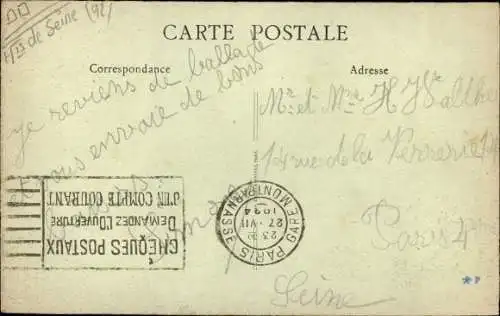 H/s de Seine (92)
CARTE POSTALE
Correspondance
Adresse
je reviens de ballade
et vous envoie de bons
Mr et Mme H Walther
14 rue de la Verrerie 14
Paris 4e
Seine
CHÈQUES POSTAUX
DEMANDEZ L'OUVERTURE
D'UN COMPTE COURANT
PARIS GARE MONTPARNASSE
27 - VII
1924